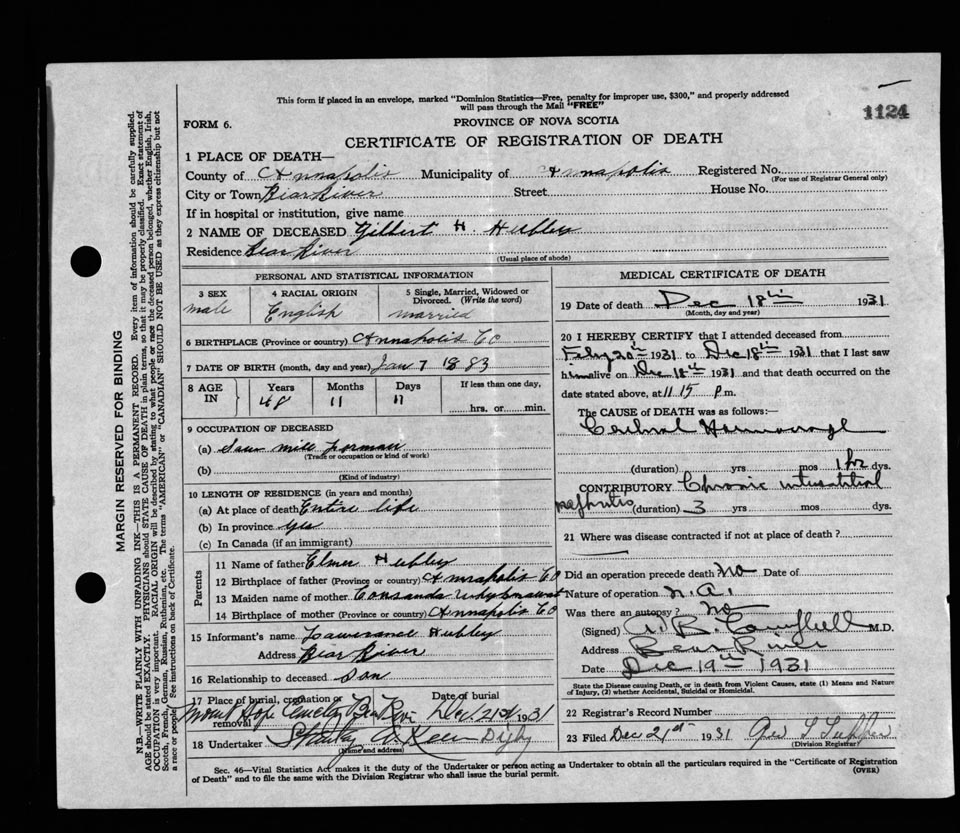 This form if placed in an envelope, marked "Dominion Statistics—Free, penalty for improper use, $300," and properly addressed
will pass through the Mail "FREE"
1124
FORM 6.
PROVINCE OF NOVA SCOTIA
CERTIFICATE OF REGISTRATION OF DEATH
1 PLACE OF DEATH—
County of Annapolis Municipality of Annapolis Registered No.
(For use of Registrar General only)
City or Town Bear River Street House No.
If in hospital or institution, give name
2 NAME OF DECEASED Gilbert H. Hubley
Residence Bear River
(Usual place of abode)
PERSONAL AND STATISTICAL INFORMATION
3 SEX 4 RACIAL ORIGIN 5 Single, Married, Widowed or Divorced. (Write the word)
male English married
6 BIRTHPLACE (Province or country) Annapolis Co
7 DATE OF BIRTH (month, day and year) Jan 7 1883
8 AGE IN Years Months Days If less than one day,
48 11 11 hrs. or min.
9 OCCUPATION OF DECEASED
(a) Saw mill forman
(Trade or occupation or kind of work)
(b)
(Kind of industry)
10 LENGTH OF RESIDENCE (in years and months)
(a) At place of death Entire life
(b) In province yes
(c) In Canada (if an immigrant)
Parents
11 Name of father Elmer Hubley
12 Birthplace of father (Province or country) Annapolis Co
13 Maiden name of mother
14 Birthplace of mother (Province or country) Annapolis Co
15 Informant's name Lawerance Hubley
Address Bear River
16 Relationship to deceased son
17 Place of burial, cremation or removal Date of burial
Mount Hope Cemetry Bear River Dec 21st 1931
18 Undertaker Digby
(Name and address)
MEDICAL CERTIFICATE OF DEATH
19 Date of death Dec 18th 1931
(Month, day and year)
20 I HEREBY CERTIFY that I attended deceased from
Feby 20th 1931 to Dec 18th 1931 that I last saw
him alive on Dec 18th 1931 and that death occurred on the
date stated above, at 11 15 p m.
The CAUSE of DEATH was as follows:—
Cerebral Hemorrage
(duration) yrs mos 1 hr dys.
CONTRIBUTORY Chronic interstitial
nephritis (duration) 3 yrs mos dys.
21 Where was disease contracted if not at place of death?
Did an operation precede death? No Date of
Nature of operation n.a.
Was there an autopsy? No
(Signed) A. B. Campbell M.D.
Address Bear River
Date Dec 19th 1931
State the Disease causing Death, or in death from Violent Causes, state (1) Means and Nature of Injury, (2) whether Accidental, Suicidal or Homicidal.
22 Registrar's Record Number
23 Filed Dec 21st 1931 Geo L Tupper
(Division Registrar)
Sec. 46—Vital Statistics Act makes it the duty of the Undertaker or person acting as Undertaker to obtain all the particulars required in the "Certificate of Registration
of Death" and to file the same with the Division Registrar who shall issue the burial permit.
(OVER)
MARGIN RESERVED FOR BINDING
N.B.—WRITE PLAINLY WITH UNFADING INK—THIS IS A PERMANENT RECORD. Every item of information should be carefully supplied.
AGE should be stated EXACTLY. PHYSICIANS should STATE CAUSE OF DEATH in plain terms, so that it may be properly classified. Exact statement of
OCCUPATION is very important. RACIAL ORIGIN will be described by stating to what people or race the deceased person belonged, whether English, Irish,
Scotch, French, German, Russian, Ruthenian, etc. The terms "AMERICAN" or "CANADIAN" SHOULD NOT BE USED as they express citizenship but not
a race or people. See instructions on back of Certificate.